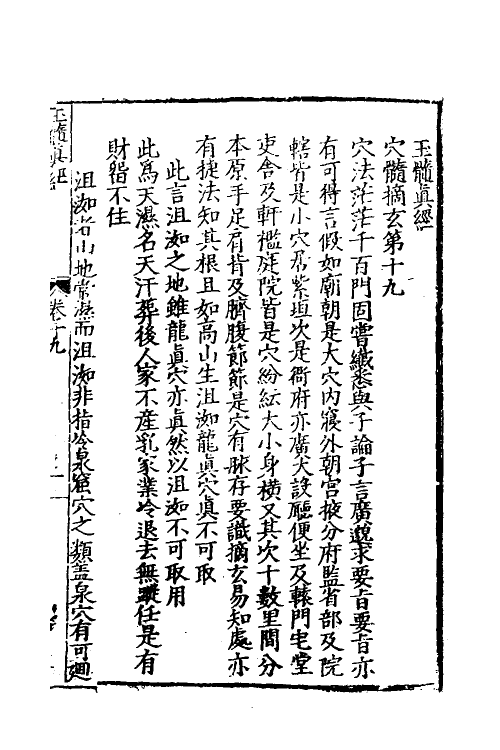 玉髓眞經
穴髓摘玄第十九
穴法茫茫千百門固嘗纎悉與子論子言廣邈求要㫖要㫖亦
有可得言假如廟朝是大穴内寢外朝宫掖分府監省部及院
轄皆是小穴居紫垣次是衙府亦廣大設廳便坐及轅門宅堂
吏舍及軒檻庭院皆是穴紛紜大小身横又其次十數里間分
本原手足肩背及臍腹節節是穴有脉存要識摘玄易知處亦
有捷法知其根且如高山生沮洳龍眞穴眞不可取
此言沮洳之地雖龍眞穴亦眞然以沮洳不可取用
此爲天濕名天汗葬後人家不産乳家業冷退去無蹤任是有
財畱不住
沮洳者山地常濕而沮洳非指冷泉窟穴之類盖泉穴有可廻
玉髓眞經
卷十九